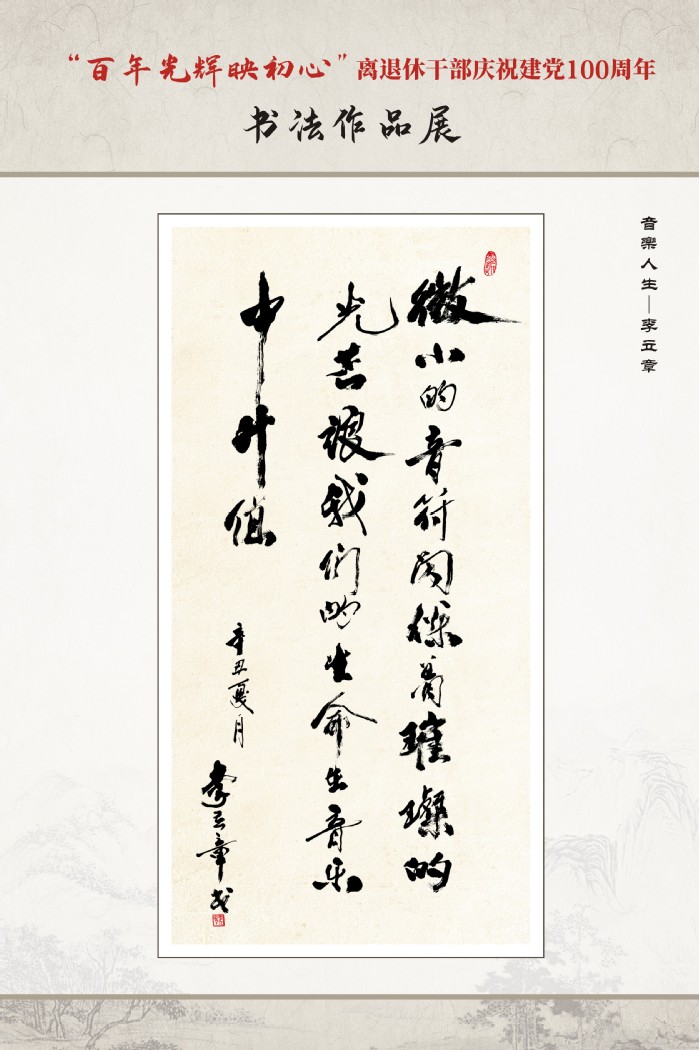 “百年光辉映初心”离退休干部庆祝建党100周年
书法作品展
音乐人生—李立章
微小的音符闪烁着璀璨的
光芒让我们的生命在音乐
中升值
辛丑夏月
李立章书